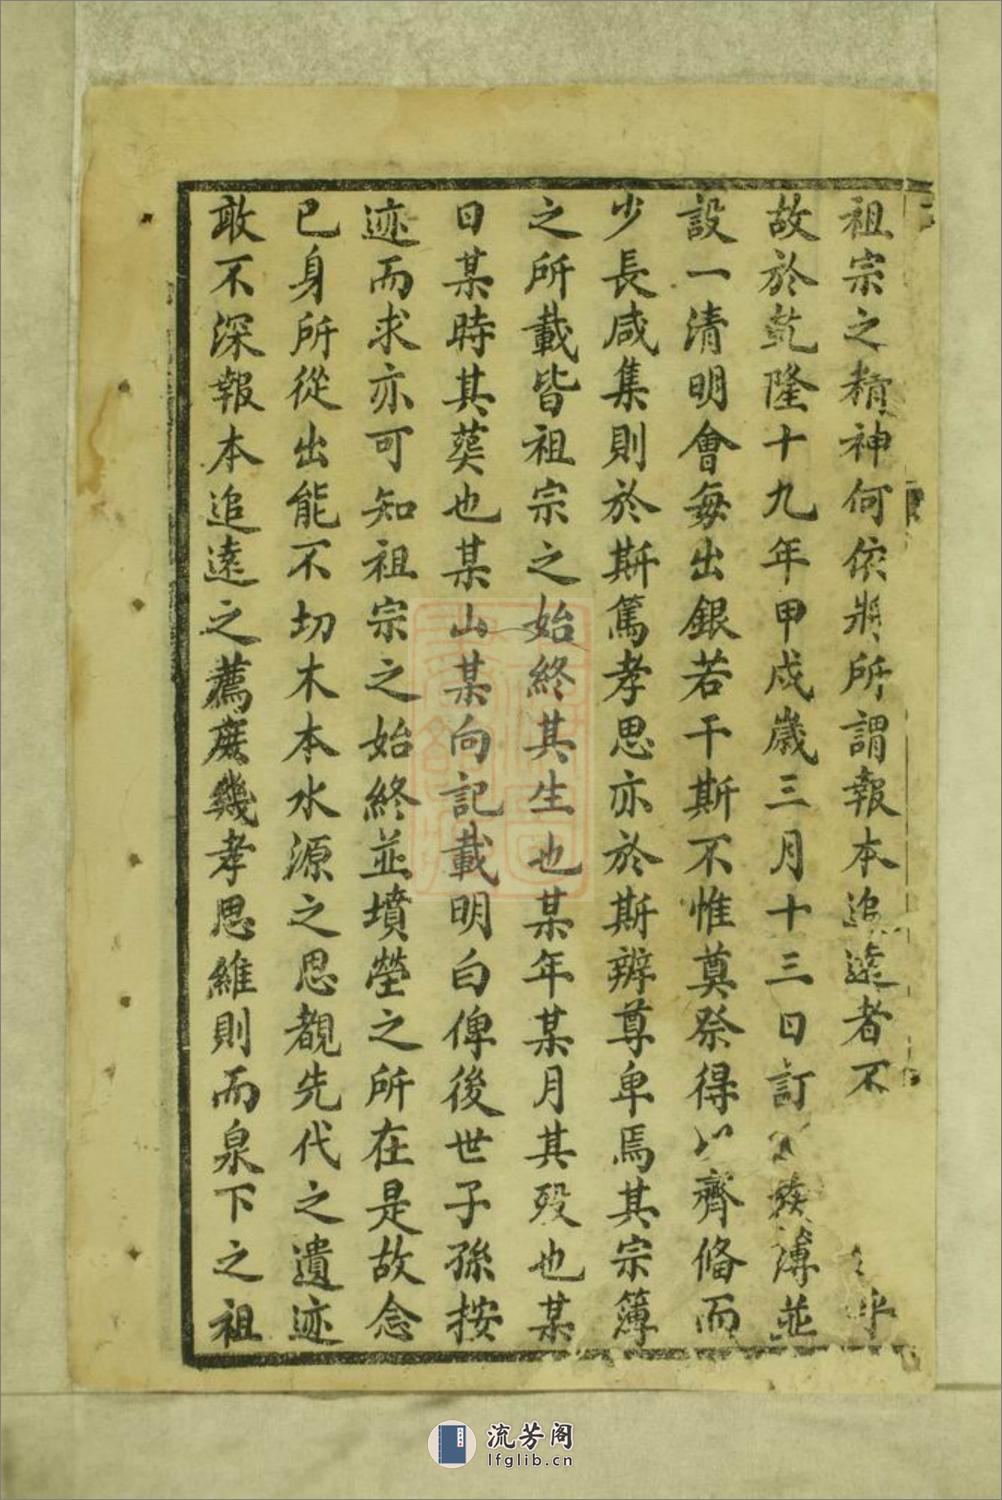 祖宗之精神何依將所謂報本追遠者不乎
故於乾隆十九年甲戍歲三月十三日訂族薄並
設一清明會每出銀若干斯不惟奠祭得以齊俻而
少長咸集則於斯篤孝思亦於斯辨尊卑焉其宗簿
之所載皆祖宗之始終其生也某年某月其殁也某
日某時其葬也某山某向記載明白俾後世子孫按
迹而求亦可知祖宗之始終並墳塋之所在是故念
已身所從出能不切木本水源之思覩先代之遺迹
敢不深報本追遠之薦庶幾孝思維則而泉下之祖
流芳阁
lfglib.cn